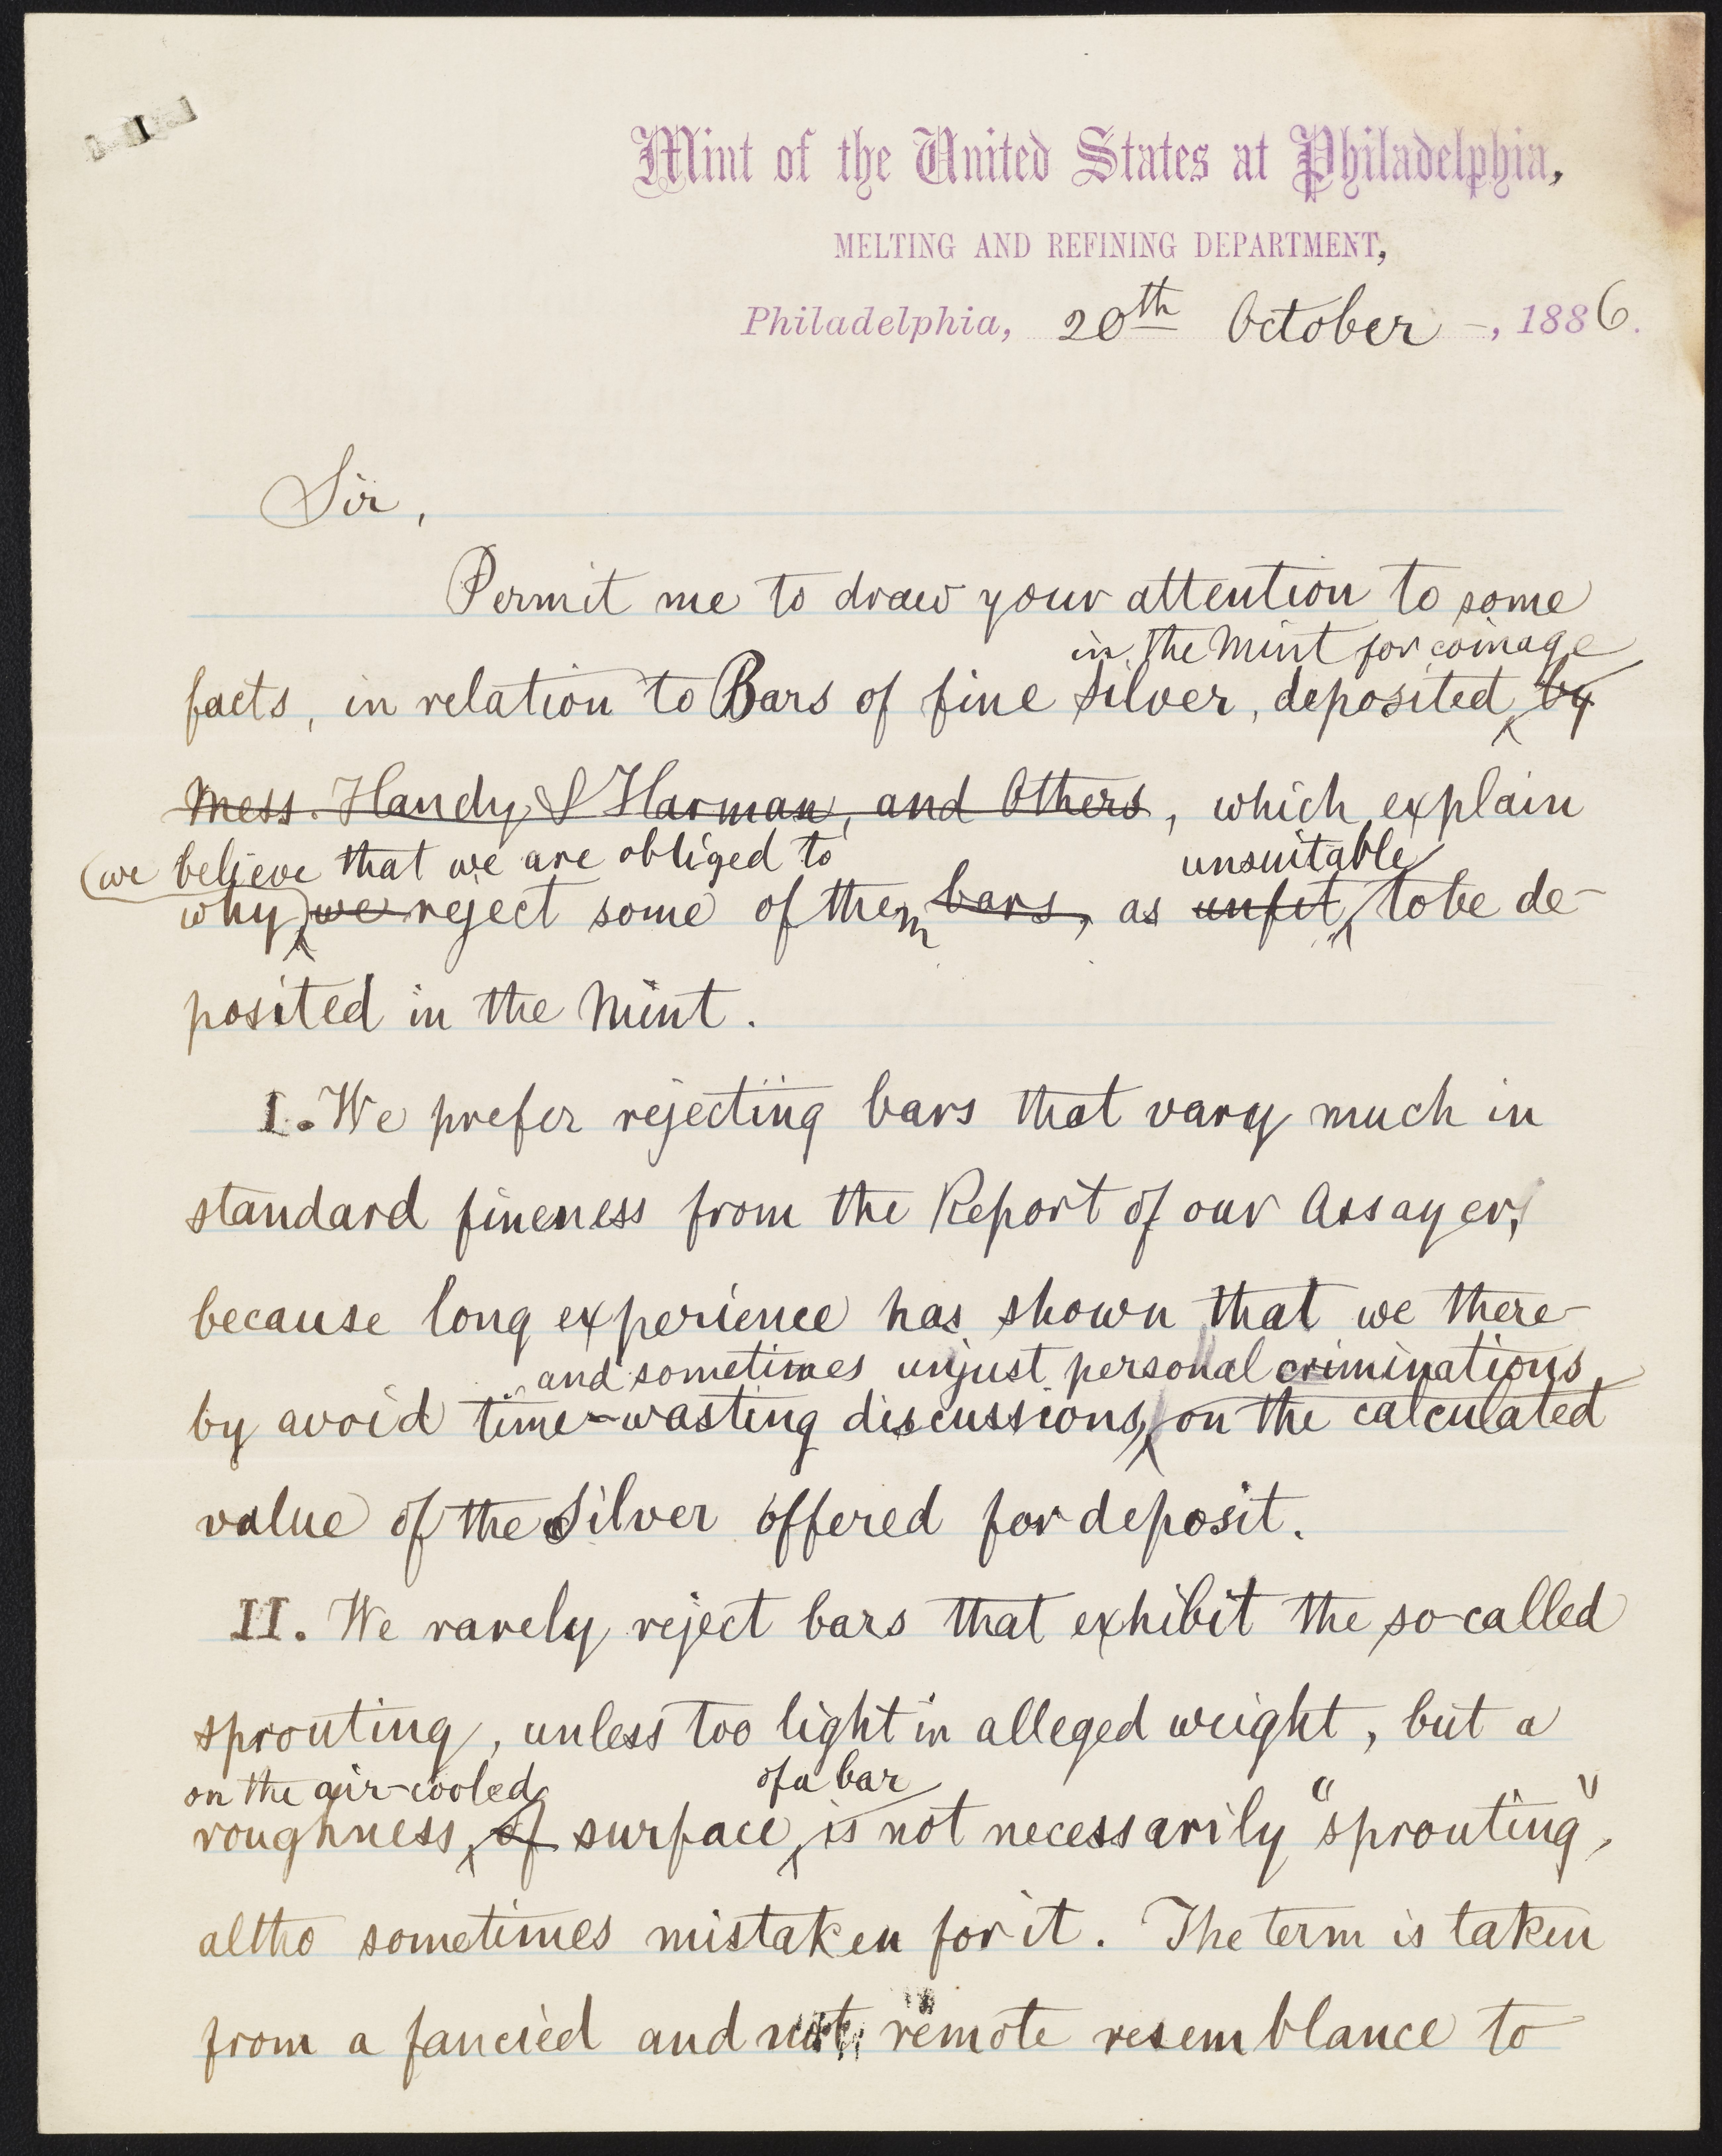 Mint of the United States at Philadelphia,
MELTING AND REFINING DEPARTMENT,
Philadelphia, 20th October –, 1886.
Sir,
Permit me to draw your attention to some
in the Mint for coinage
facts, in relation to Bars of fine Silver, deposited by
Mess. Handy & Harman, and Others, which explain
(we believe that we are obliged to
unsuitable
why) we reject some of them bars, as unfit, to be de-
posited in the Mint.
I. We prefer rejecting bars that vary much in
standard fineness from the Report of our Assayer,
because long experience has shown that we there-
and sometimes unjust personal criminations,
by avoid time-wasting discussions, on the calculated
value of the Silver offered for deposit.
II. We rarely reject bars that exhibit the so-called
sprouting, unless too light in alleged weight, but a
on the air-cooled
of a bar
roughness, of surface, is not necessarily "sprouting",
altho sometimes mistaken for it. The term is taken
from a fancied and not remote resemblance to